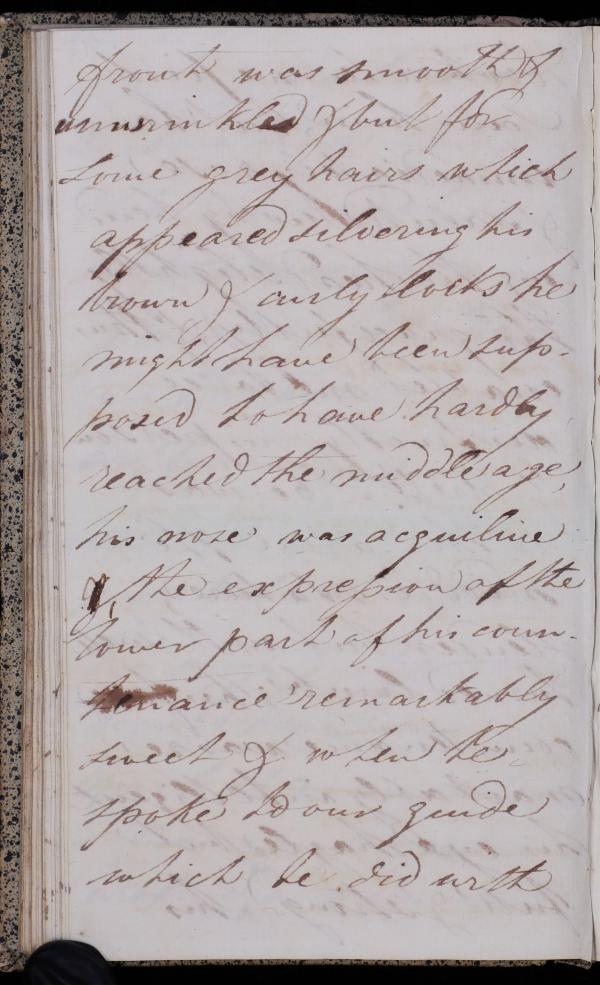 front was smooth &
unwrinkled & but for
some grey hairs which
appeared silvering his
brown & curly locks he
might have been sup-
posed to have hardly
reached the middle age,
his nose was acquiline
&, the expression of the
lower part of his coun-
tenance remarkably
sweet & when he
spoke to our guide
which he did with